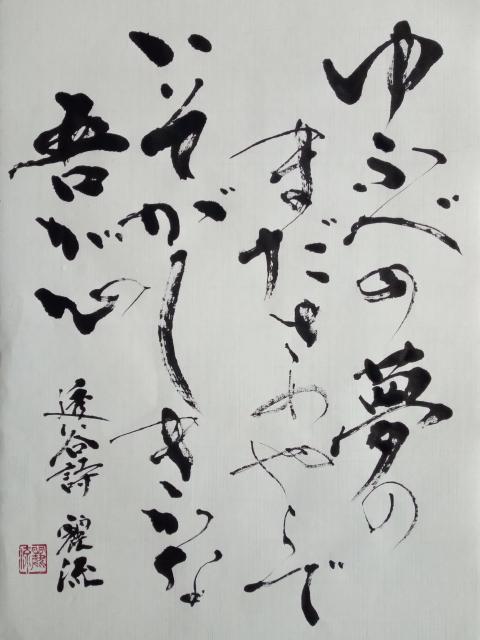 ゆふべの夢の
まださめやらで
いそがしきかな
吾が心
透谷詩 麗流